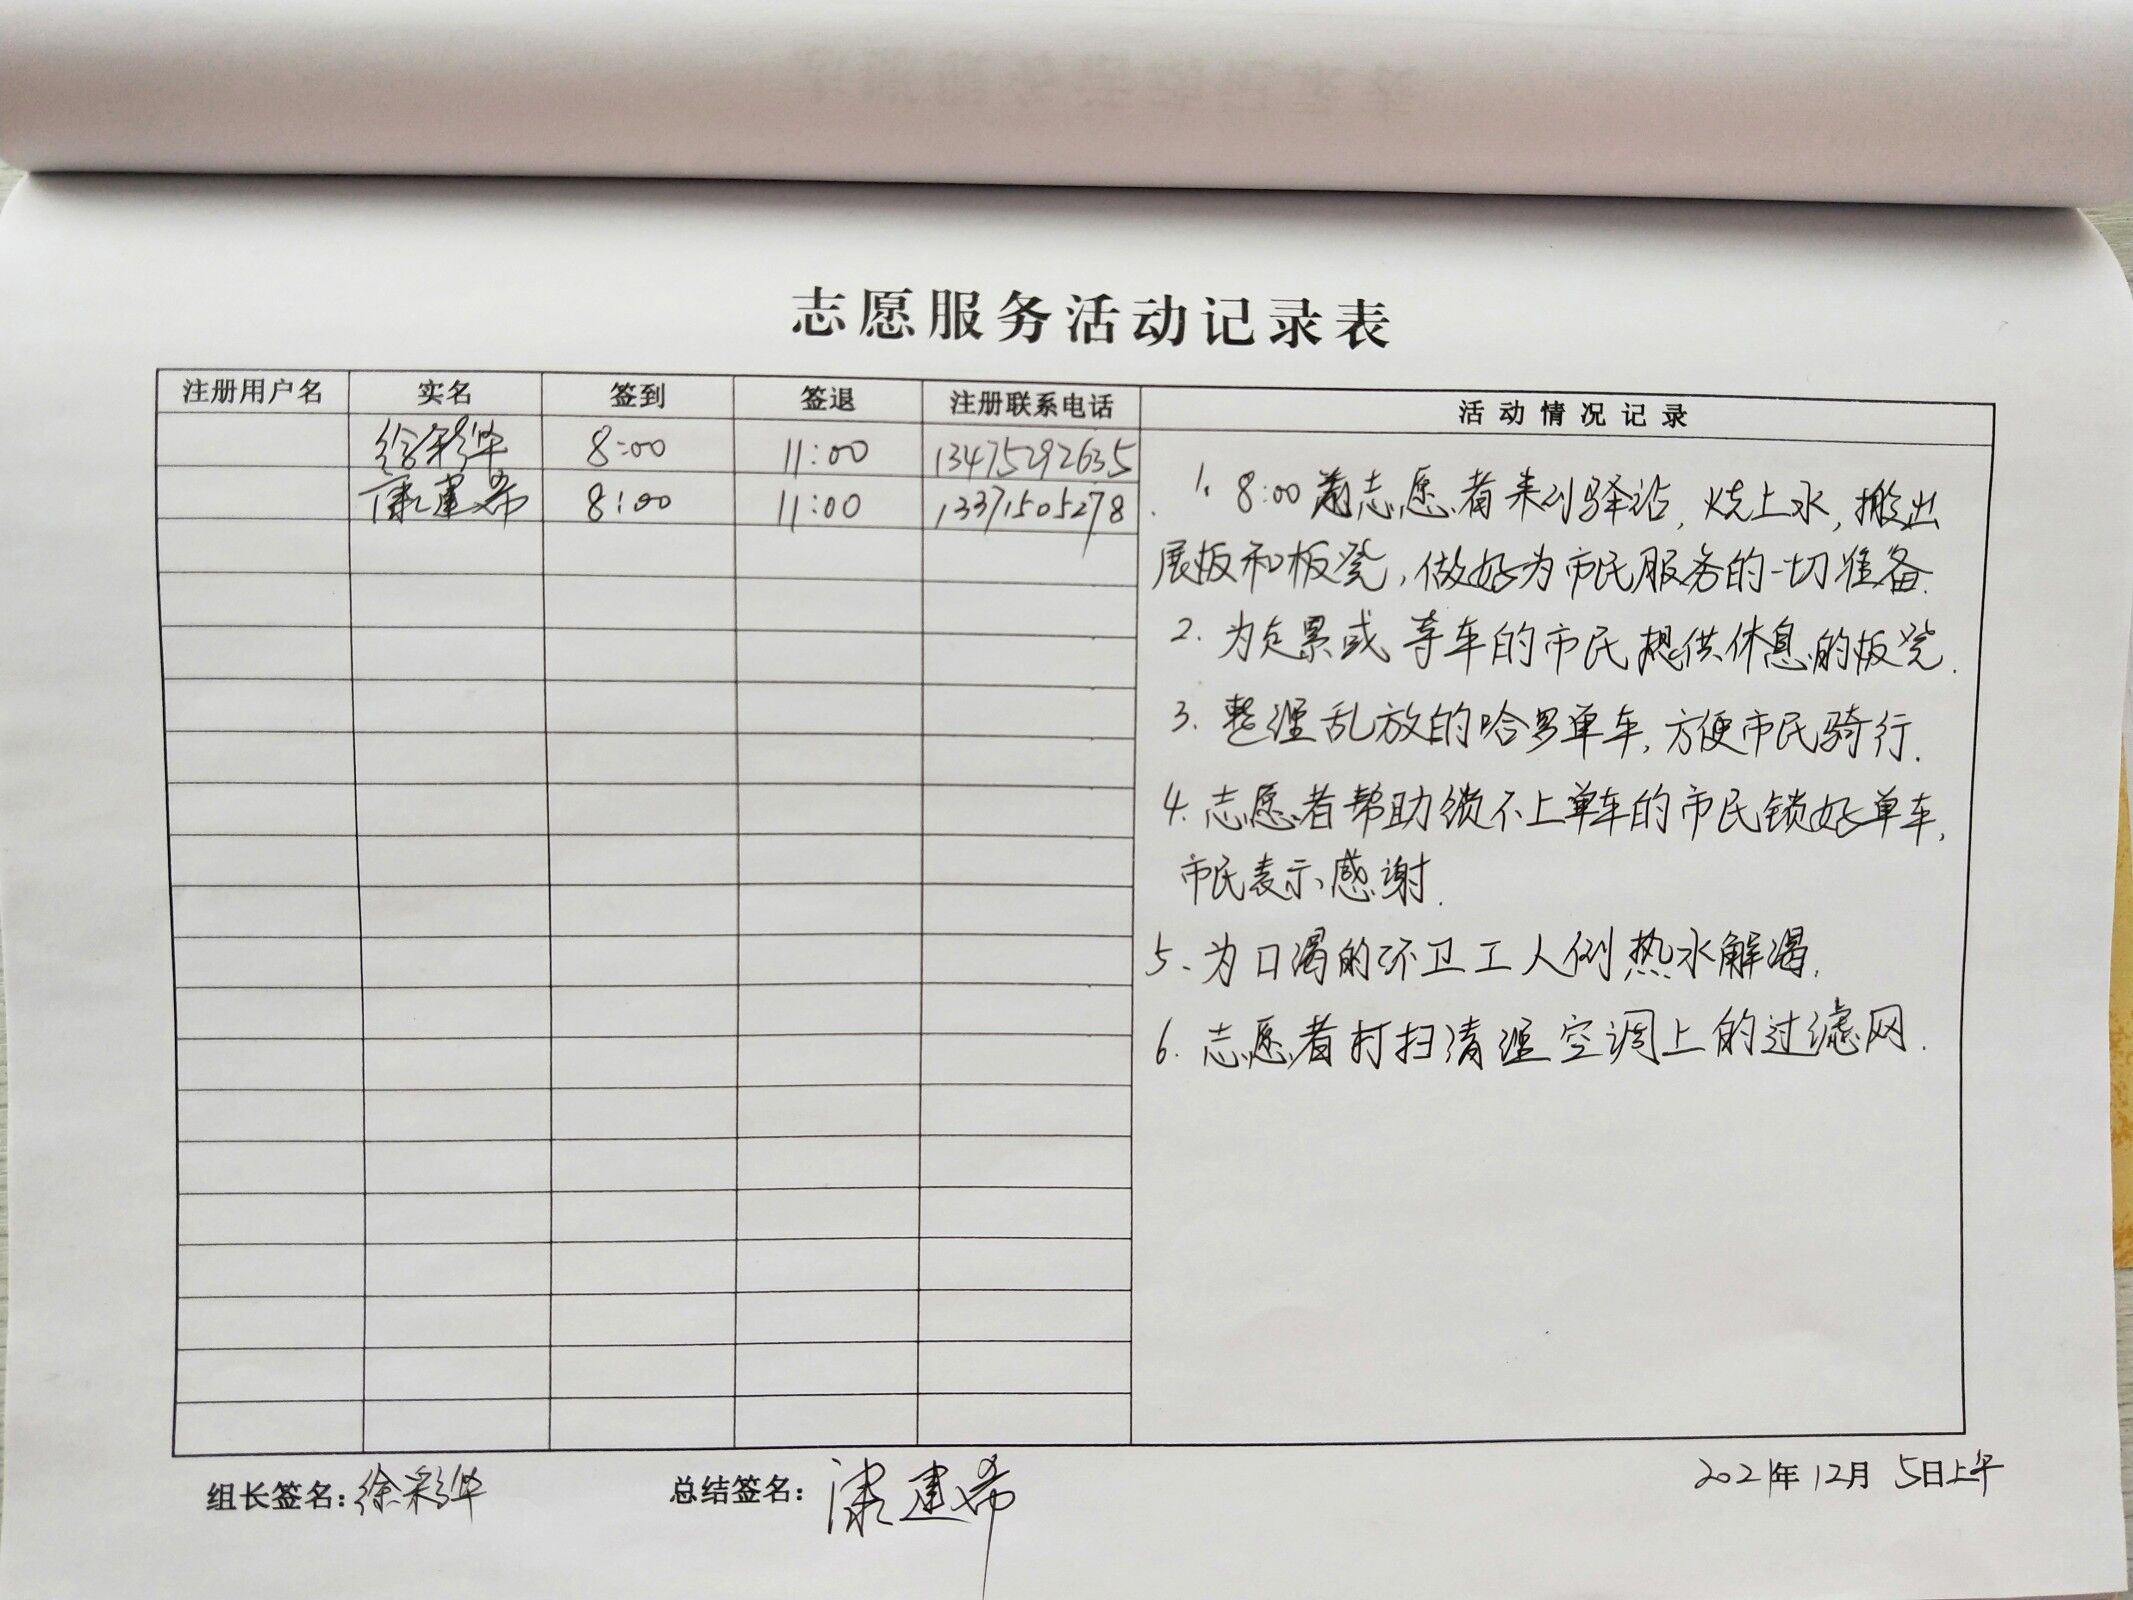 志愿服务活动记录表
注册用户名 实名 签到 签退 注册联系电话 活动情况记录
徐彩华 8:00 11:00 13475292635
康建希 8:00 11:00 13371505278
1、8:00前志愿者来到驿站,烧上水,搬出
展板和板凳,做好为市民服务的一切准备.
2.为走累或等车的市民提供休息的板凳.
3.整理乱放的哈罗单车,方便市民骑行.
4.志愿者帮助锁不上单车的市民锁好单车,
市民表示感谢.
5、为口渴的环卫工人倒热水解渴.
6.志愿者打扫清理空调上的过滤网.
组长签名:徐彩华 总结签名:康建希 2021年12月5日上午